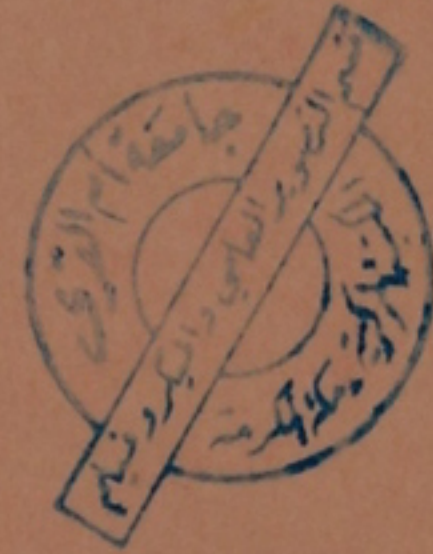 جامعة ام القرى
قسم التصوير العلمي والميكروفيلم
مكة المكرمة